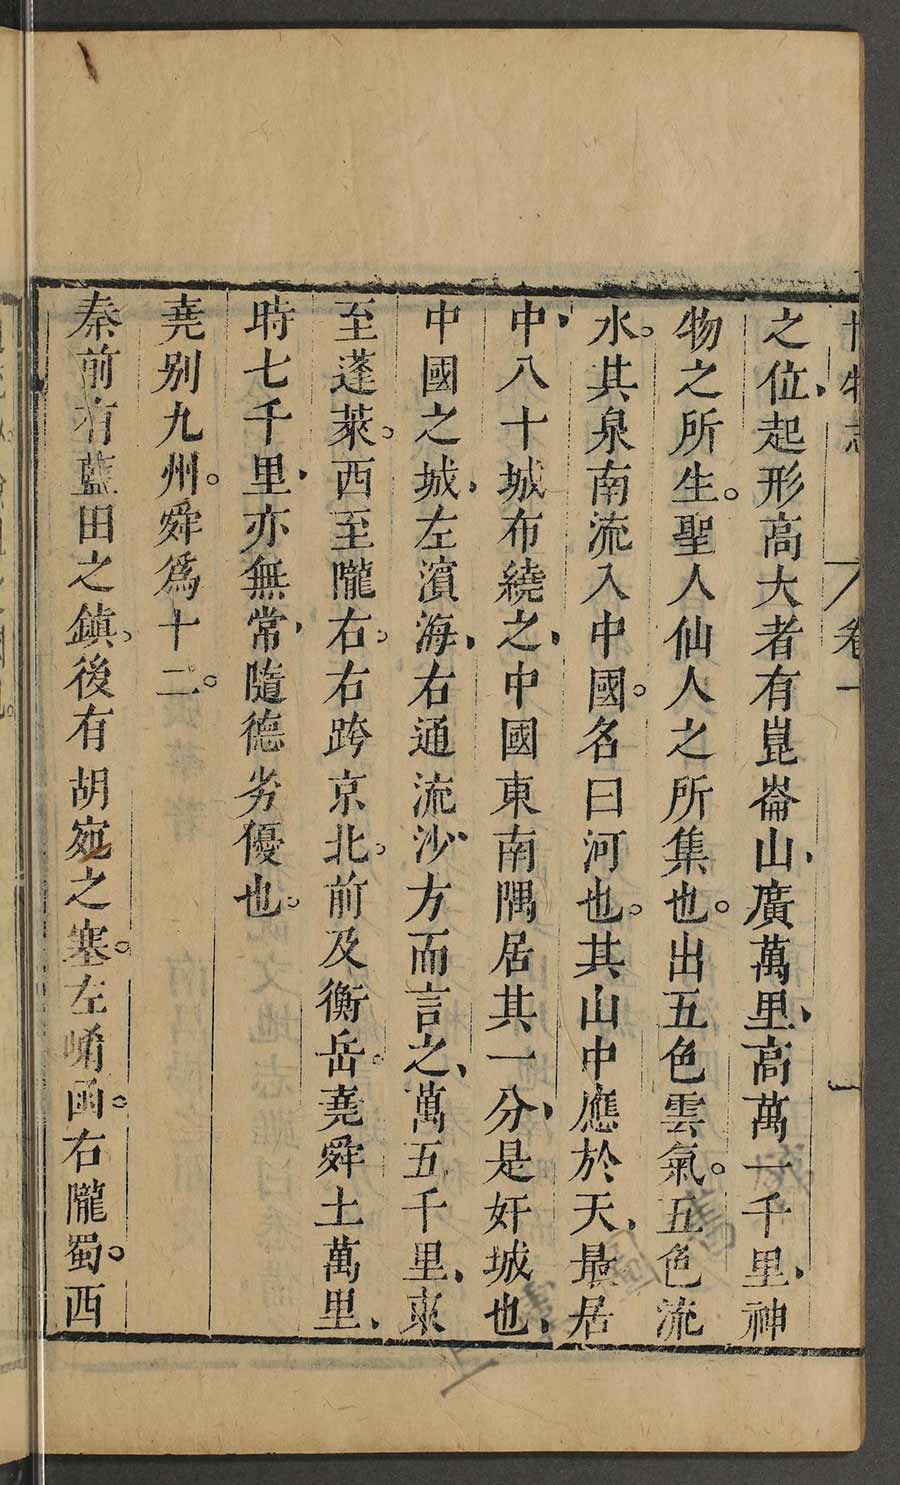 博物志 卷一 一
之位、起形高大者有崑崙山、廣萬里、高萬一千里、神
物之所生。聖人仙人之所集也。出五色雲氣。五色流
水。其泉南流入中國。名曰河也。其山中應於天、最居
中、八十城布繞之、中國東南隅居其一分、是奸城也、
中國之城、左濱海、右通流沙、方而言之、萬五千里、東
至蓬萊。西至隴右。右跨京北。前及衡岳。堯舜土萬里、
時七千里、亦無常、隨德劣優也。
堯别九州。舜爲十二。
秦前有藍田之鎮。後有胡宛之塞。左崤函。右隴蜀。西